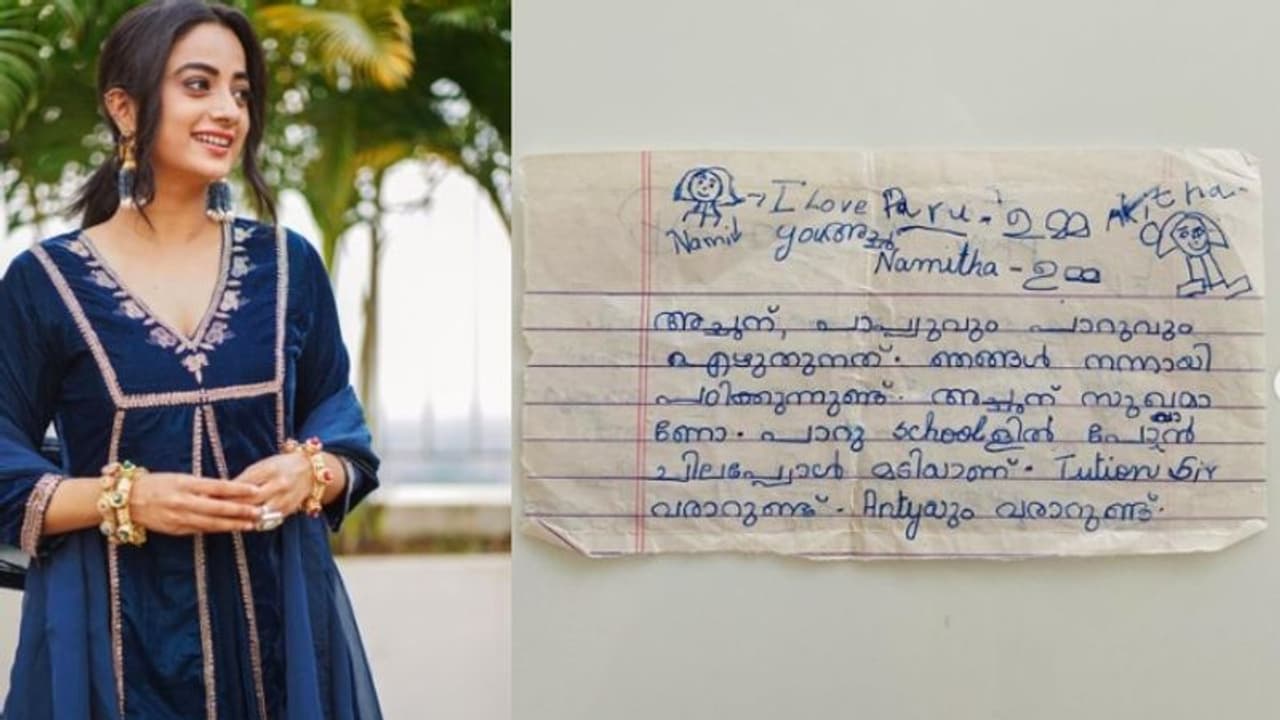 I Love Paru - ഉമ്മ Akitha
Namit you അച്ഛൻ
Namitha - ഉമ്മ
അച്ചുന്, പാപ്പുവും പാറുവും
എഴുതുന്നത്. ഞങ്ങൾ നന്നായി
പഠിക്കുന്നുണ്ട്. അച്ചുന് സുഖമാ
ണോ. പാറു schoolളിൽ പോവാൻ
ചിലപ്പോൾ മടിയാണ്. Tution Sir
വരാറുണ്ട്. Antyയും വരാറുണ്ട്.